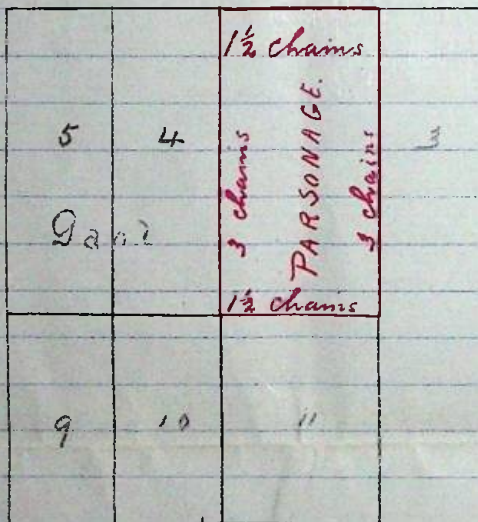 1½ chains
5 4 3 chains PARSONAGE. 3 chains 3
1½ chains
9 10 11